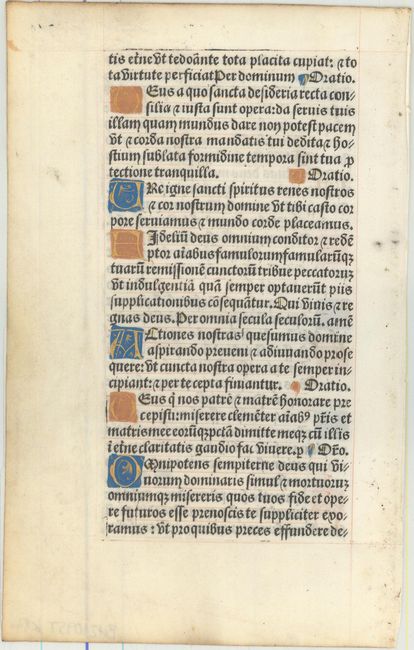 tis et̄ne vt te dōante tota placita cupiat: ⁊ to
ta virtute perficiat Per dominum Oratio.
Deus a quo sancta desideria recta con-
silia ⁊ iusta sunt opera: da servis tuis
illam quam mundus dare non potest pacem
vt ⁊ corda nostra mandatis tui dedita ⁊ ho-
stium sublata formidine tempora sint tua ꝓ
tectione tranquilla. Oratio.
URe igne sancti spiritus renes nostros
⁊ cor nostrum domine vt tibi casto cor
pore serviamus ⁊ mundo corde placeamus.
FIdeliū deus omnium conditor ⁊ redē
ptor aīabus famulorum famularūq;
tuarū remissionē cunctorū tribue peccatoruꝫ
vt indulgentiā quā semper optaverūt piis
supplicationibus cōsequātur. Qui vivis ⁊ re
gnas deus. Per omnia secula seculorū. amē
ACtiones nostras quesumus domine
aspirando preveni ⁊ adiuvando prose
quere: vt cuncta nostra opera a te semper in-
cipiant: ⁊ per te cepta finiantur. Oratio.
DEus q̄ nos patrē ⁊ matrē honorare pre
cepisti: miserere clemēter aīabꝰ pr̄is et
matris mee eorūq; pctā dimitte meq; cū illis
i et̄ne claritatis gaudio fac vivere. ꝑ Or̄o.
OMnipotens sempiterne deus qui vi-
vorum dominaris simul ⁊ mortuoruꝫ
omniumq; misereris quos tuos fide et ope-
re futuros esse prenoscis te suppliciter exo-
ramus: vt pro quibus preces effundere de-